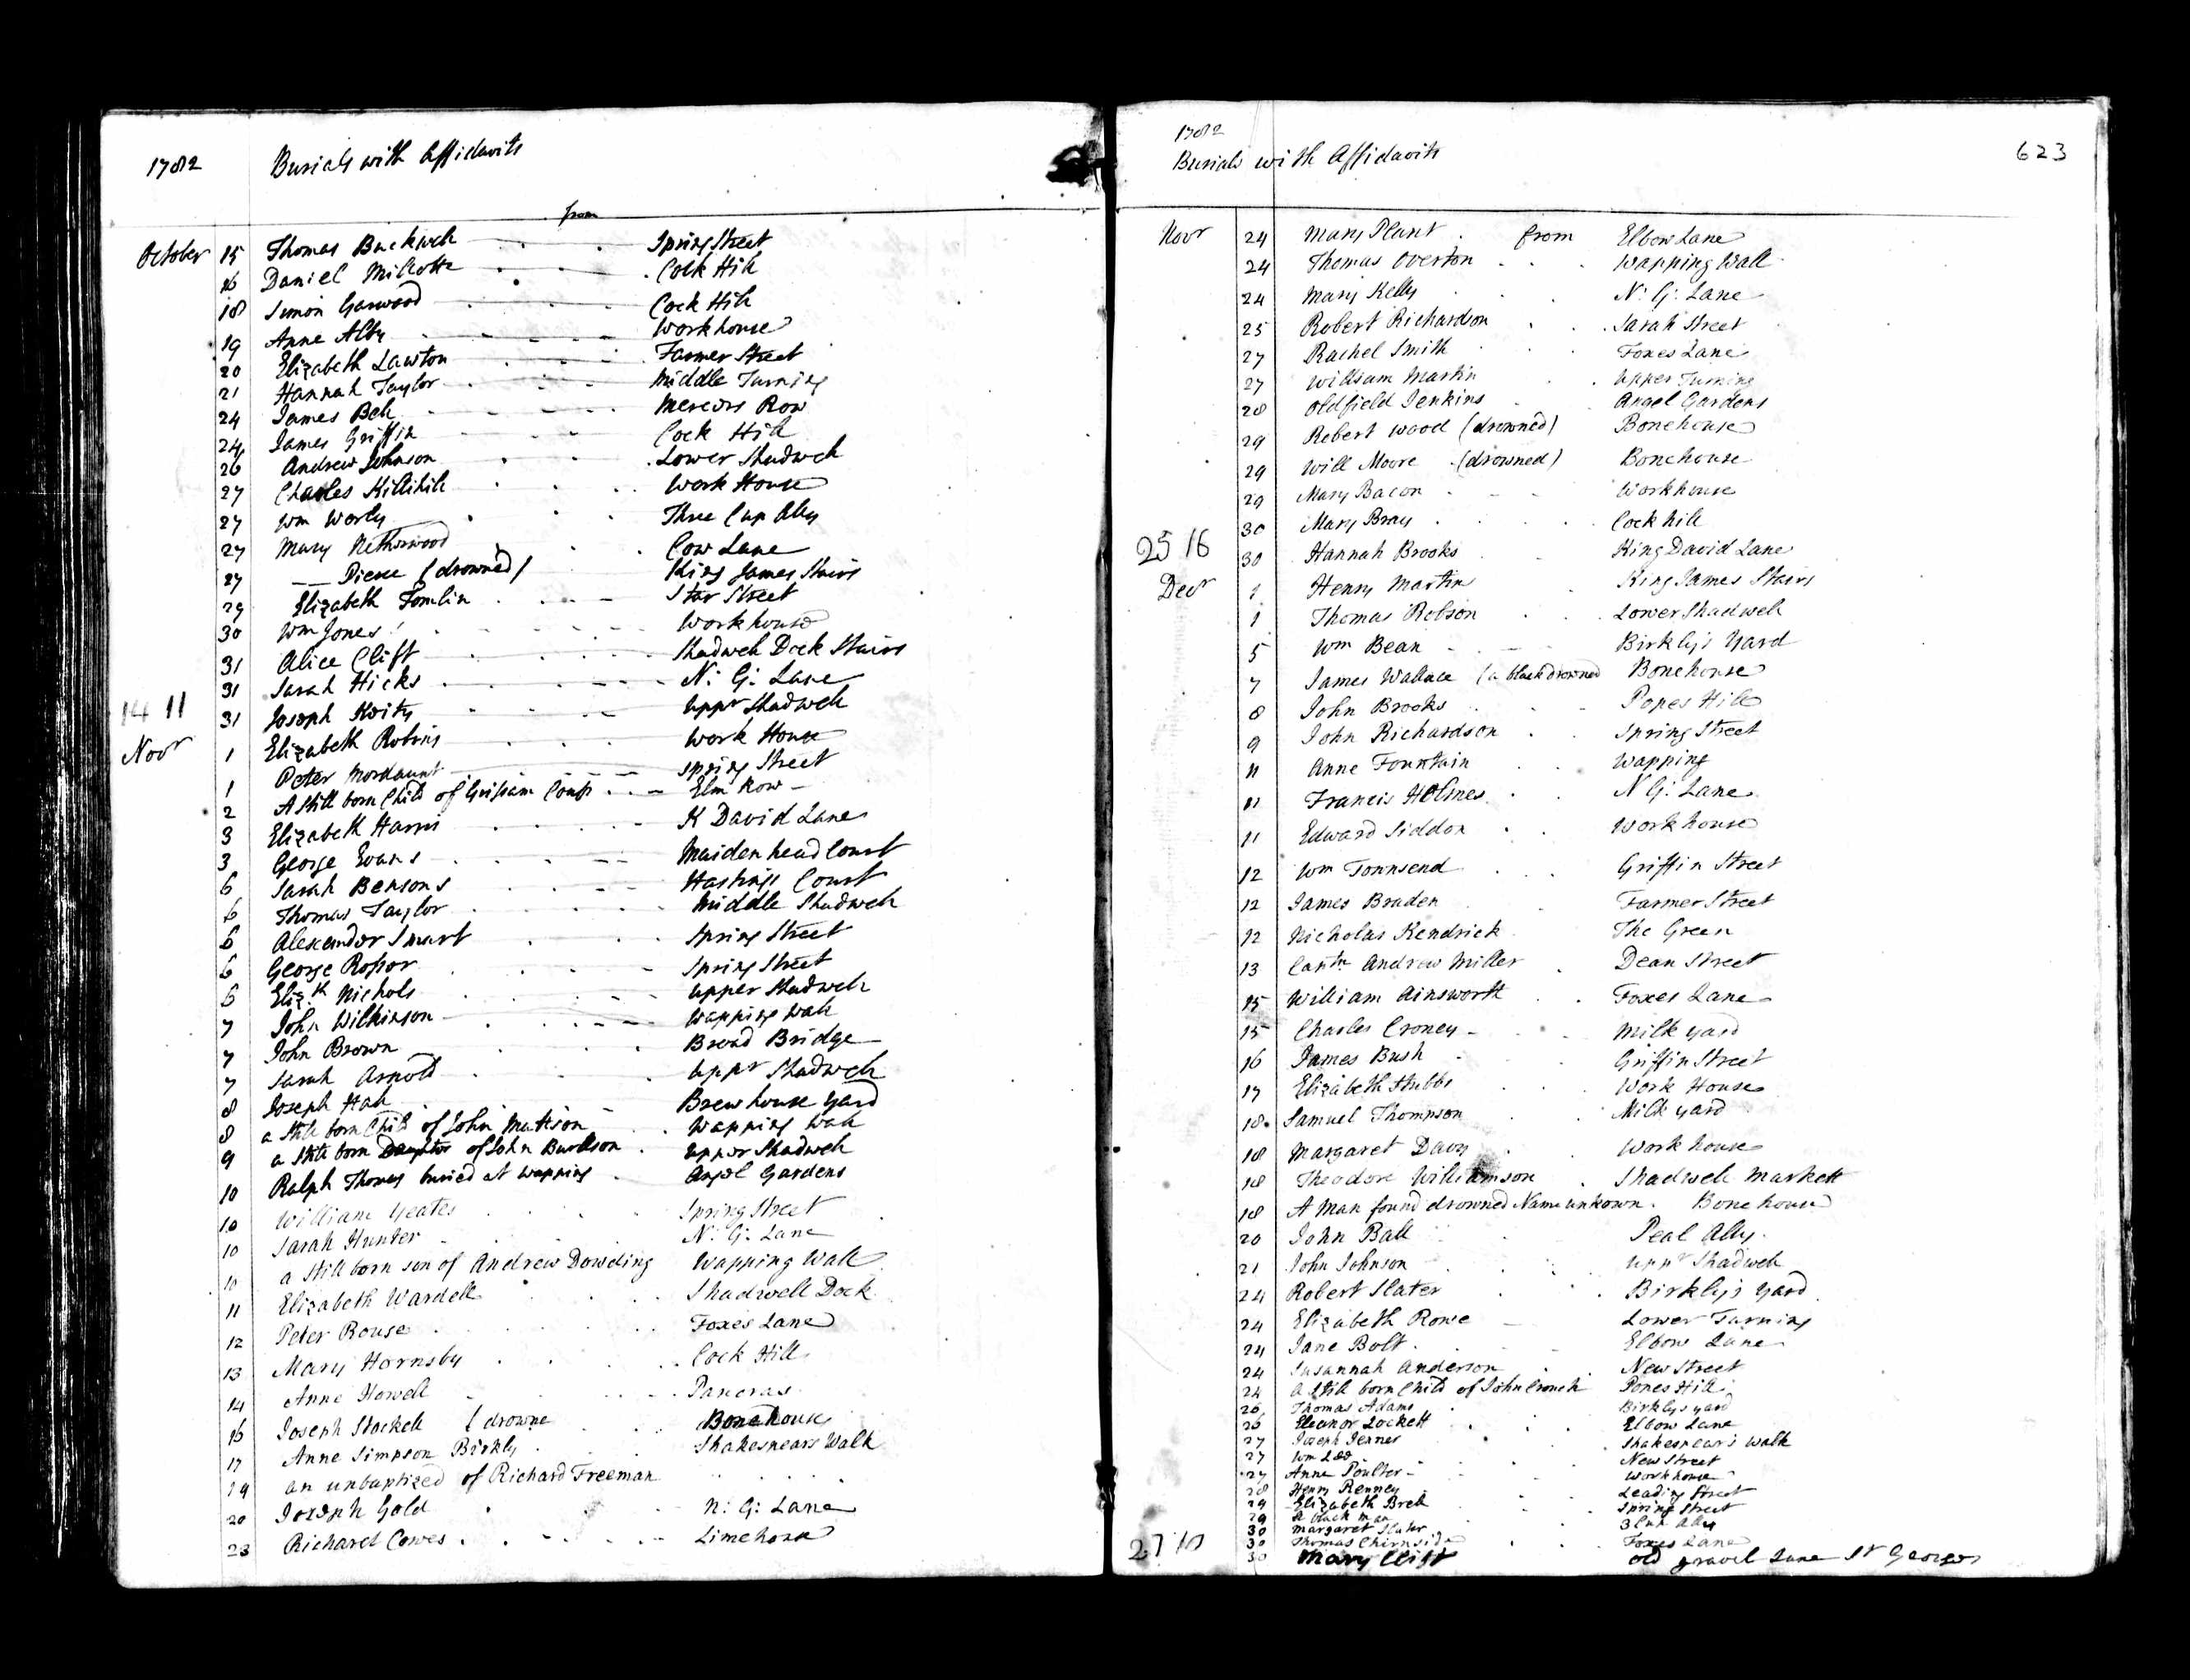 1782 Burials with Affidavits
from
October 15 Thomas Buckwell Spring Street
16 Daniel Cock Hill
18 Simon Garwood Cock Hill
19 Anne Alby Workhouse
20 Elizabeth Lawton Farmer Street
21 Hannah Taylor Middle Turning
24 James Bell Mercers Row
24 James Griffin Cock Hill
26 Andrew Johnson Lower Shadwell
27 Charles Killihill Work House
27 Wm Worly Three Cup Ally
27 Mary Netherwood Cow Lane
27 —— Pierce (drowned) King James Stairs
29 Elizabeth Tomlin Star Street
30 Wm Jones Workhouse
31 Alice Clift Shadwell Dock Stairs
31 Sarah Hicks N: G: Lane
31 Joseph Uppr Shadwell
14 11
Novr 1 Elizabeth Robins Work House
1 Peter Mordaunt Spring Street
2 A Still born Child of Elm Row
3 Elizabeth Harris K David Lane
3 George Evans Maidenhead Court
6 Sarah Bensons Hastings Court
6 Thomas Taylor Middle Shadwell
6 Alexander Smart Spring Street
6 George Rosser Spring Street
6 Elizth Nichols Upper Shadwell
7 John Wilkinson Wapping Wall
7 John Brown Broad Bridge
7 Sarah Arnold Uppr Shadwell
8 Joseph Hall Brewhouse Yard
8 a Still born Child of John Mattison Wapping Wall
9 a Still born Daughter of John Burkson Upper Shadwell
10 Ralph Thomas buried at Wapping Angel Gardens
10 William Yeates Spring Street
10 Sarah Hunter N: G: Lane
10 a Still born son of Andrew Dowding Wapping Wall
11 Elizabeth Wardell Shadwell Dock
12 Peter Rouse Foxes Lane
13 Mary Hornsby Cock Hill
14 Anne Howell Pancras
16 Joseph Stockell (drowne Bonehouse
17 Anne Simpson Birkly Shakespears Walk
19 an unbaptized of Richard Freeman
20 Joseph Gold N: G: Lane
23 Richard Cowes Limehouse
1782
Burials with Affidavits 623
Novr 24 Mary Plant from Elbow Lane
24 Thomas Overton Wapping Wall
24 Mary Kelly N: G: Lane
25 Robert Richardson Sarah Street
27 Rachel Smith Foxes Lane
27 William Martin Upper Turning
28 Oldfield Jenkins Angel Gardens
29 Robert Wood (drowned) Bonehouse
29 Will Moore (drowned) Bonehouse
29 Mary Bacon Workhouse
30 Mary Bray Cock hill
25 16
30 Hannah Brooks King David Lane
Decr 1 Henry Martin King James Stairs
1 Thomas Robson Lower Shadwell
5 Wm Bean Birkly's Yard
7 James Wallace (a black drowned Bonehouse
8 John Brooks Popes Hill
9 John Richardson Spring Street
11 Anne Fountain Wapping
11 Francis Holmes N G: Lane
11 Edward Siddon Workhouse
12 Wm Townsend Griffin Street
12 James Braden Farmer Street
12 Nicholas Kendrick The Green
13 Captn Andrew Miller Dean Street
15 William Ainsworth Foxes Lane
15 Charles Croney Milk Yard
16 James Bush Griffin Street
17 Elizabeth Stubbs Work House
18 Samuel Thompson Milk yard
18 Margaret Davy Work house
18 Theodore Williamson Shadwell Markett
18 A Man found drowned Name unknown. Bonehouse
20 John Ball Peal Ally
21 John Johnson Uppr Shadwell
24 Robert Slater Birkly's Yard
24 Elizabeth Rowe Lower Turning
24 Jane Bolt Elbow Lane
24 Susannah Anderson New Street
24 a Still born Child of John Crouch Popes Hill
26 Thomas Adams Birklys yard
26 Eleanor Lockett Elbow Lane
27 Joseph Jenner Shakespear's Walk
27 Wm Lee New Street
27 Anne Poulter Workhouse
28 Henry Renney Leading Street
29 Elizabeth Brell Spring Street
29 A black man
30 Margaret Slater 3 Cup Ally
30 Thomas Chirnside Foxes Lane
27 18
30 Mary Clift Old gravel Lane St Georges